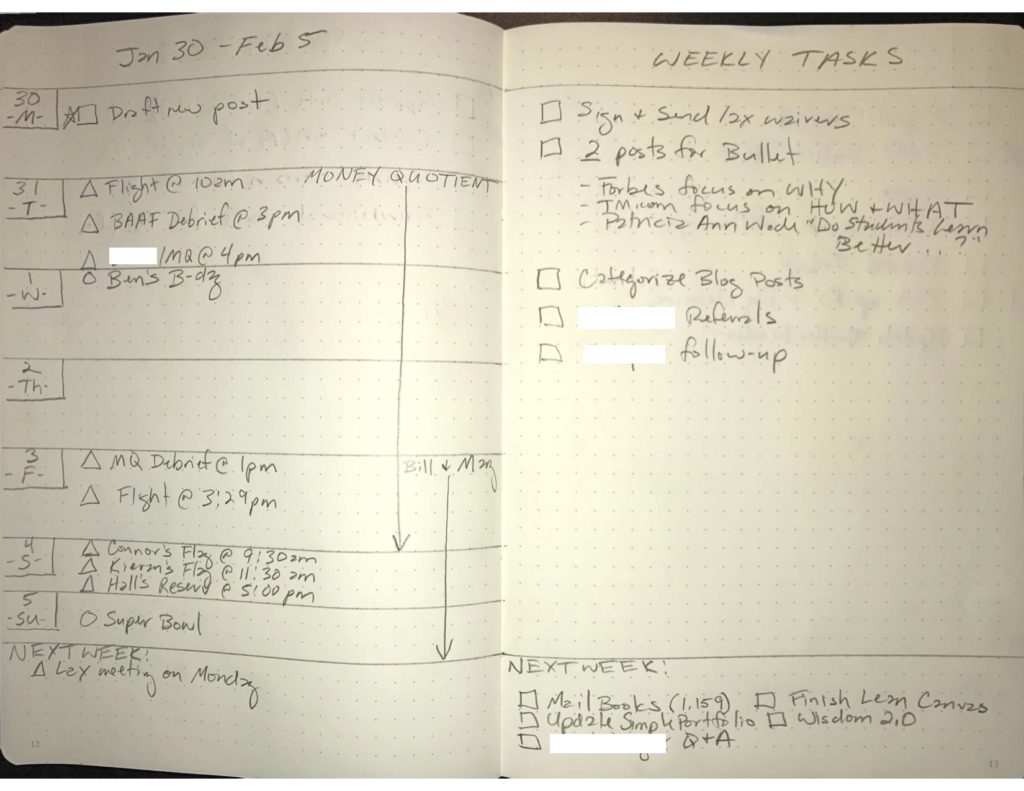 Jan 30 - Feb 5
30
-M-
Draft new post
31
-T-
MONEY QUOTIENT
Flight @ 10am
BAAF Debrief @ 3pm
/MQ @ 4pm
1
-W-
Ben's B-day
2
-Th-
3
-F-
MQ Debrief @ 1pm
Bill + May
Flight @ 3:29pm
4
-S-
Connor's Flag @ 9:30am
Kieran's Flag @ 11:30 am
Hall's Reserv @ 5:00 pm
5
-Su-
Super Bowl
NEXT WEEK!
Lax meeting on Monday
12
WEEKLY TASKS
Sign + Send lax waivers
2 posts for Bullet
- Forbes focus on WHY
- TM.com focus on HOW + WHAT
- Patricia Ann "Do Students Learn
Better ...?"
Categorize Blog Posts
Referrals
follow-up
NEXT WEEK!
Mail Books (1,159)
Finish Lean Canvas
Update Simple Portfolio
Wisdom 2.0
Q+A
13